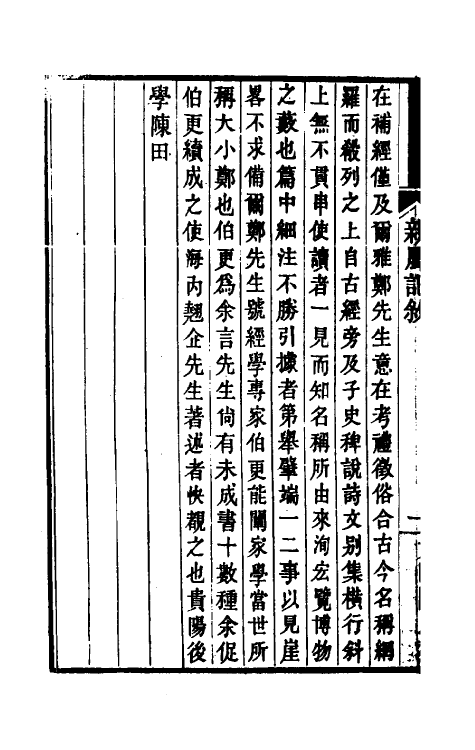 在補經僅及爾雅鄭先生意在考禮徵俗合古今名稱網
羅而殽列之上自古經旁及子史稗說詩文别集橫行斜
上無不貫串使讀者一見而知名稱所由來洵宏覽博物
之藪也篇中細注不勝引據者第舉肇端一二事以見崖
畧不求備爾鄭先生號經學專家伯更能闡家學當世所
稱大小鄭也伯更爲余言先生尙有未成書十數種余促
伯更續成之使海內翹企先生著述者快覩之也貴陽後
學陳田
親屬記敘
二